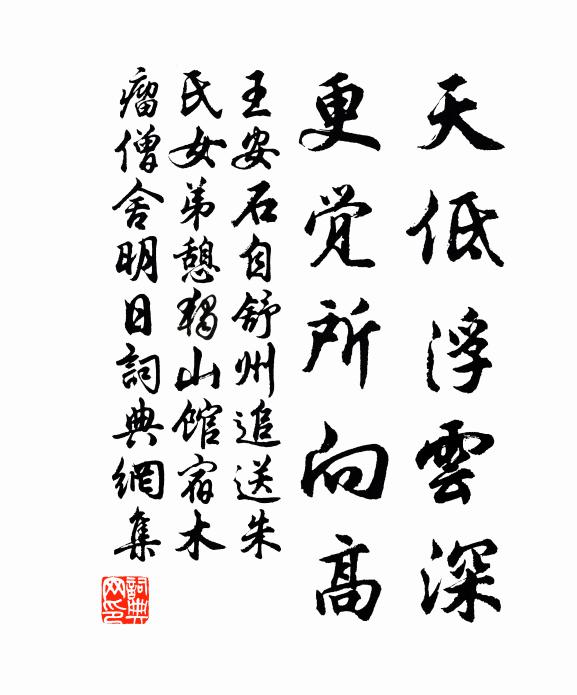 天低浮雲深
更觉所向高
王安石自舒州追送朱
氏女弟憩獨山館宿木
瘤僧舍明日詞典網集
詞典
网印